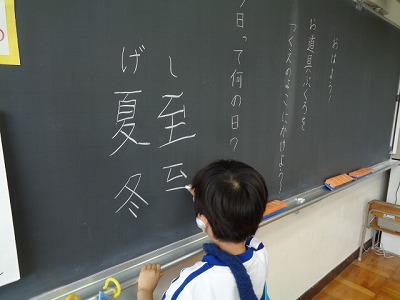 おはよう。
お道具ぶくろを
つくえのよこにかけよう。
今日って何の日?
し
至至
げ
夏冬